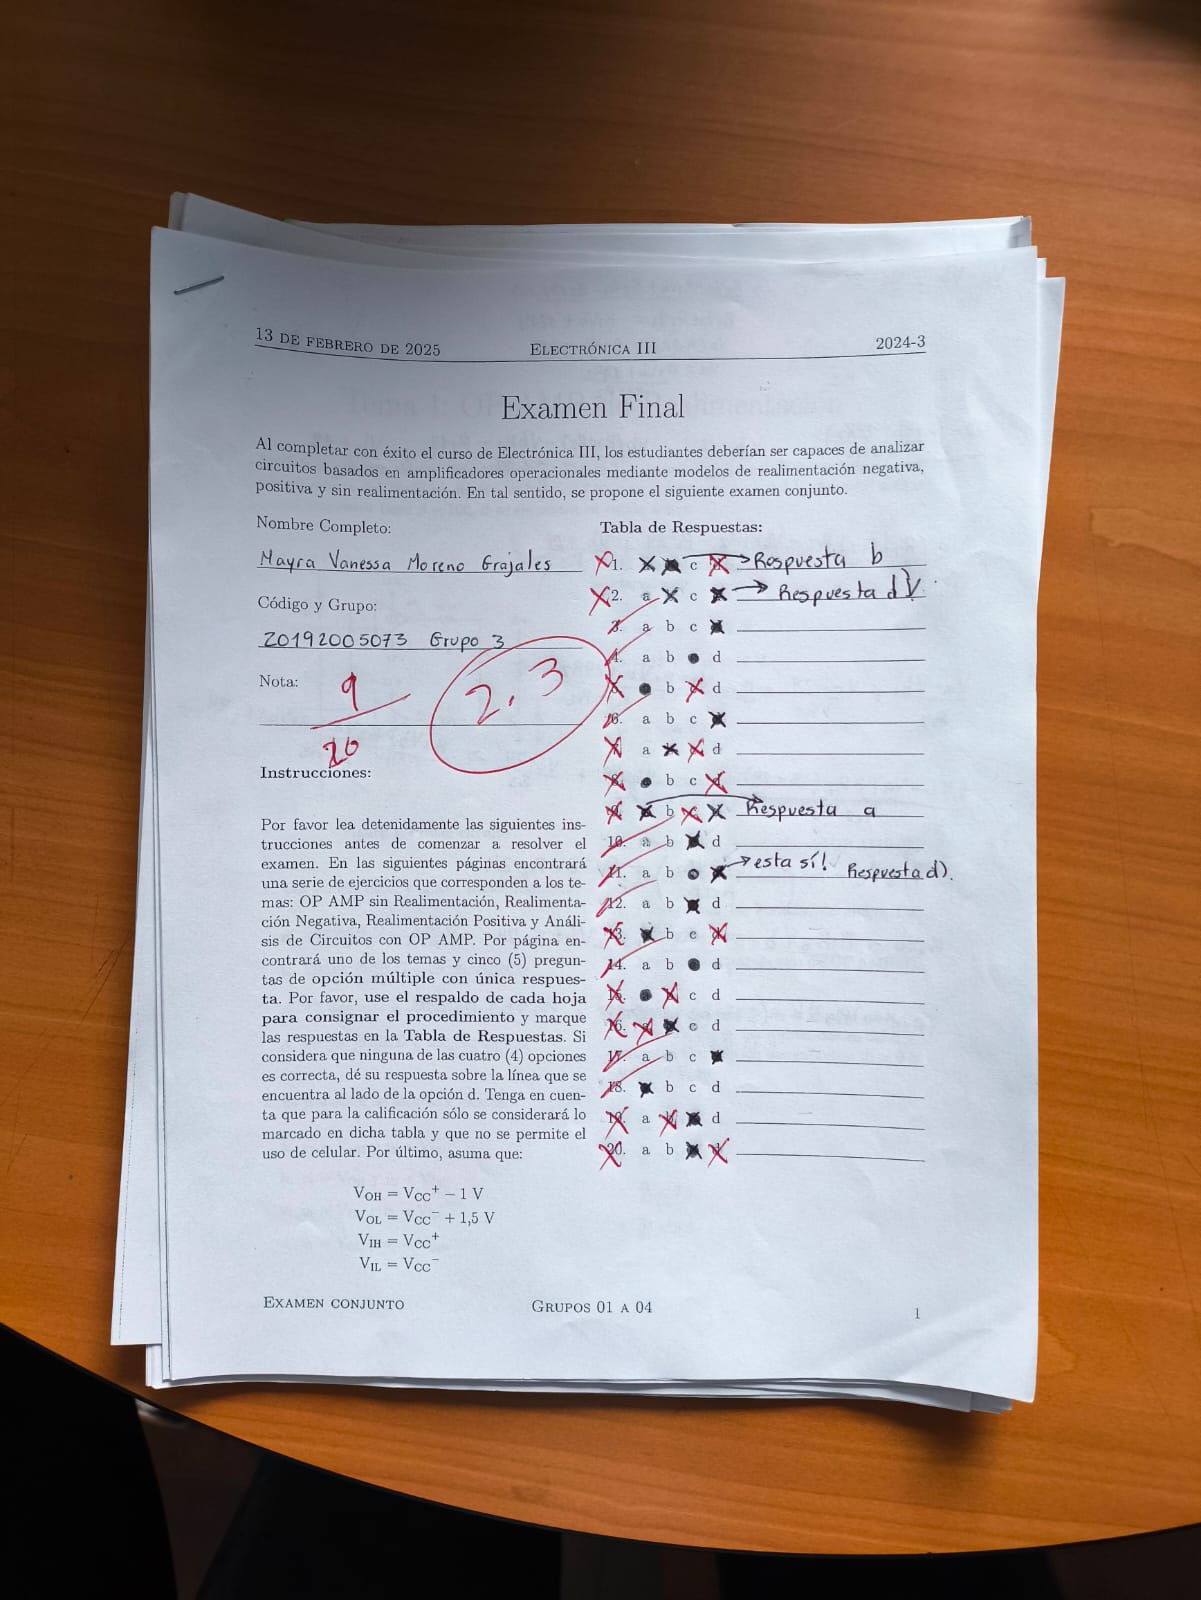 13 DE FEBRERO DE 2025 ELECTRÓNICA III 2024-3
Examen Final
Al completar con éxito el curso de Electrónica III, los estudiantes deberían ser capaces de analizar
circuitos basados en amplificadores operacionales mediante modelos de realimentación negativa,
positiva y sin realimentación. En tal sentido, se propone el siguiente examen conjunto.
Nombre Completo:
Mayra Vanessa Moreno Grajales
Código y Grupo:
20192005073 Grupo 3
Nota:
9
20
2.3
Instrucciones:
Por favor lea detenidamente las siguientes ins-
trucciones antes de comenzar a resolver el
examen. En las siguientes páginas encontrará
una serie de ejercicios que corresponden a los te-
mas: OP AMP sin Realimentación, Realimenta-
ción Negativa, Realimentación Positiva y Análi-
sis de Circuitos con OP AMP. Por página en-
contrará uno de los temas y cinco (5) pregun-
tas de opción múltiple con única respues-
ta. Por favor, use el respaldo de cada hoja
para consignar el procedimiento y marque
las respuestas en la Tabla de Respuestas. Si
considera que ninguna de las cuatro (4) opciones
es correcta, dé su respuesta sobre la línea que se
encuentra al lado de la opción d. Tenga en cuen-
ta que para la calificación sólo se considerará lo
marcado en dicha tabla y que no se permite el
uso de celular. Por último, asuma que:
VOH = VCC+ − 1 V
VOL = VCC− + 1,5 V
VIH = VCC+
VIL = VCC−
Tabla de Respuestas:
1. c Respuesta b
2. a c Respuesta d
3. a b c
4. a b d
b d
a b c
a d
b c
b Respuesta a
10. a b d
11. a b esta sí! Respuesta d).
12. a b d
13. b c
14. a b d
15. c d
16. c d
17. a b c
18. b c d
19. a d
20. a b
EXAMEN CONJUNTO GRUPOS 01 A 04 1